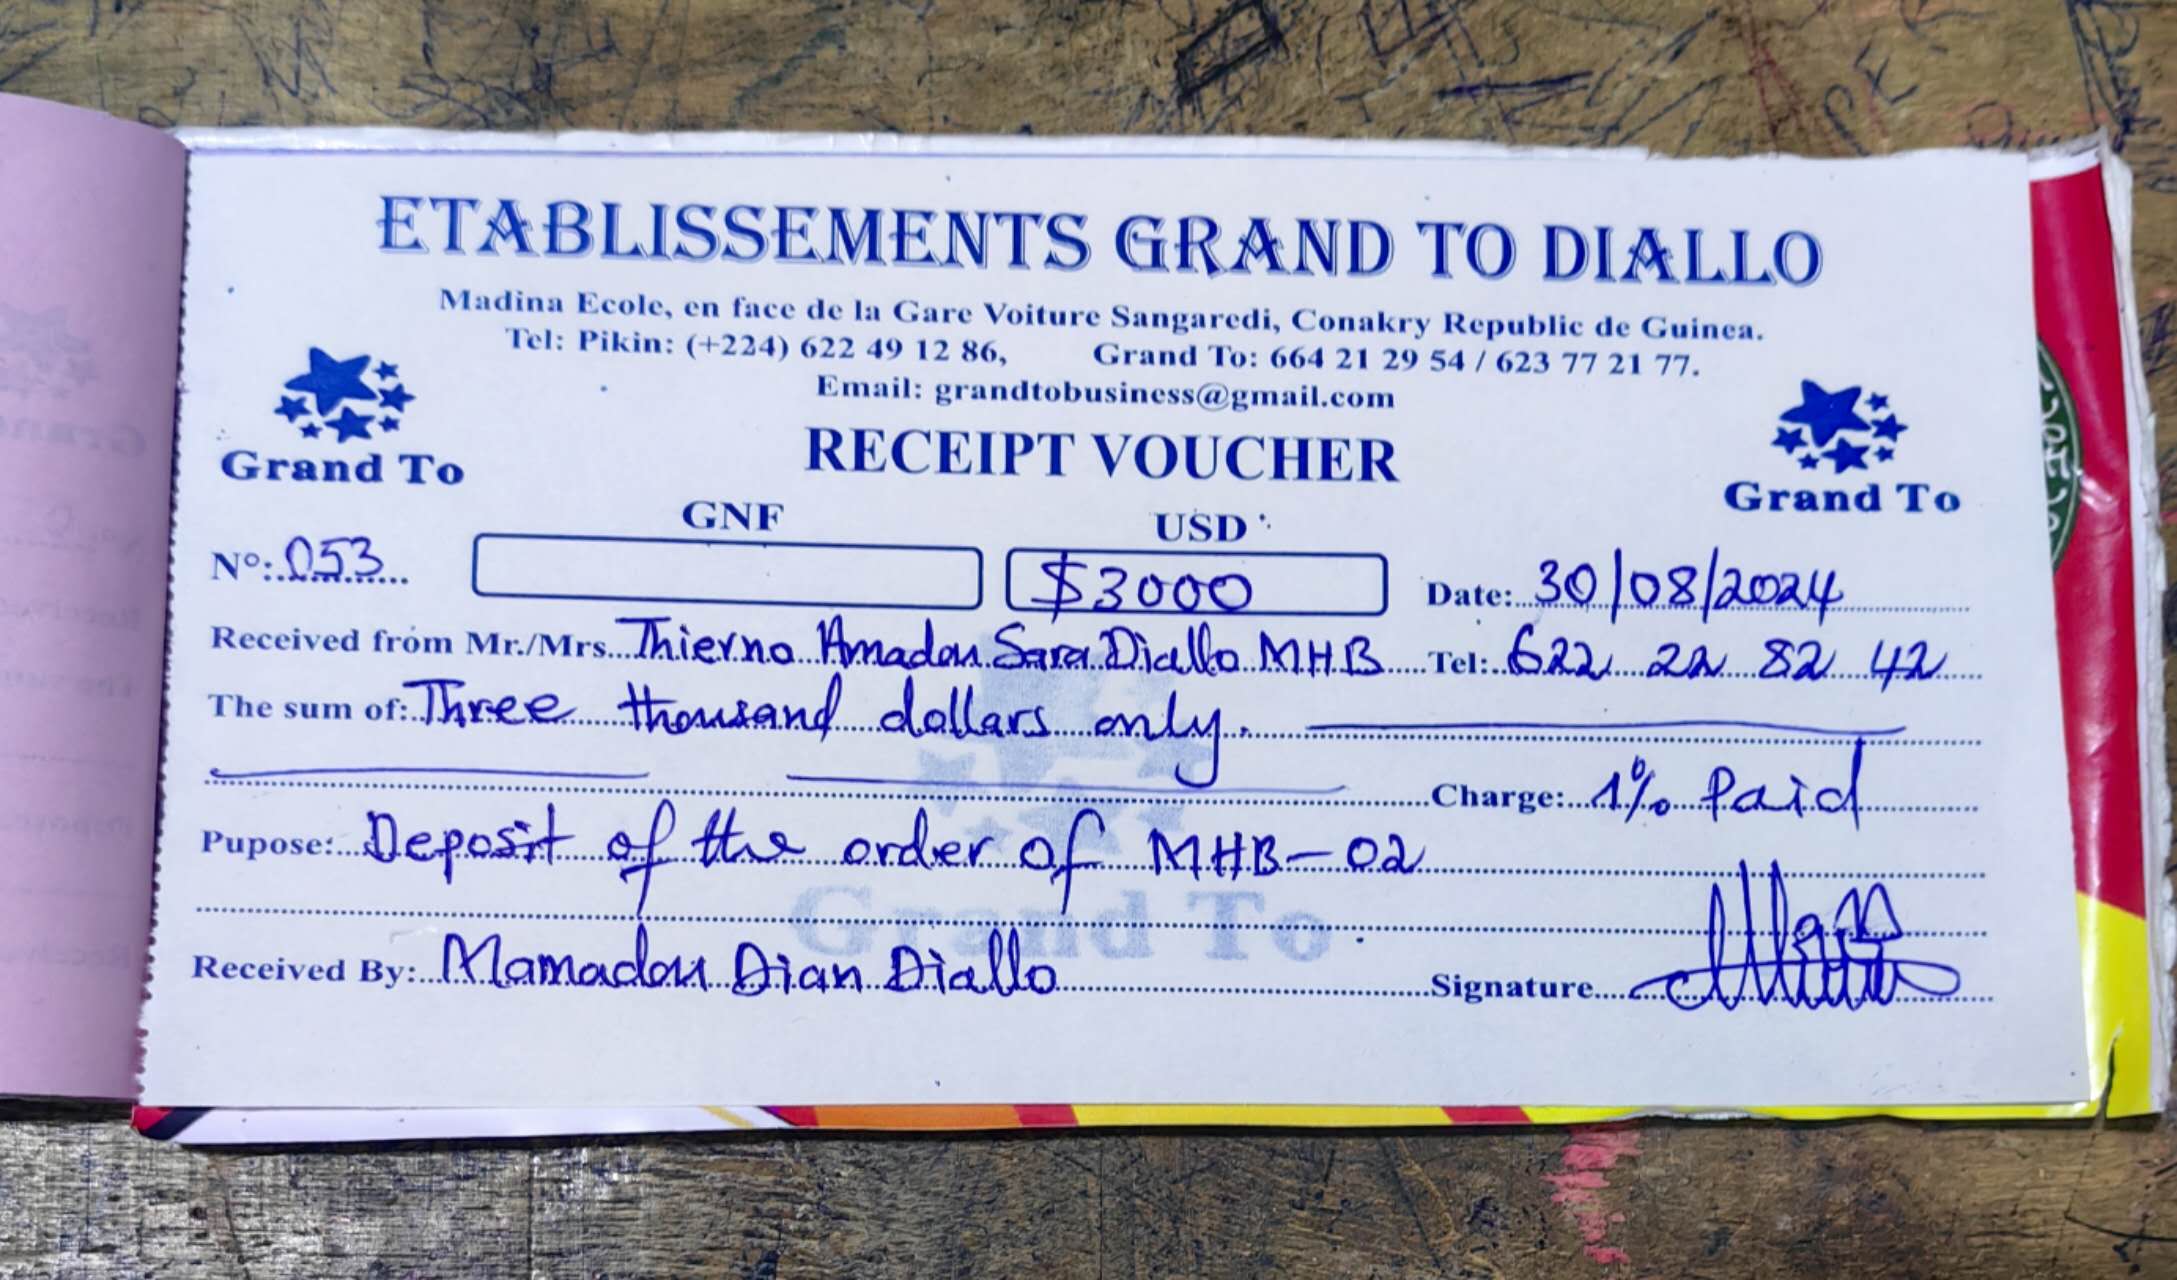 ETABLISSEMENTS GRAND TO DIALLO
Madina Ecole, en face de la Gare Voiture Sangaredi, Conakry Republic de Guinea.
Tel: Pikin: (+224) 622 49 12 86, Grand To: 664 21 29 54 / 623 77 21 77.
Email: grandtobusiness@gmail.com
Grand To
RECEIPT VOUCHER
Grand To
GNF USD
N°: 053 $3000 Date: 30/08/2024
Received from Mr./Mrs. Thierno Amadou Sara Diallo MHB Tel: 622 22 82 42
The sum of: Three thousand dollars only.
Charge: 1% Paid
Pupose: Deposit of the order of MHB-02
Grand To
Received By: Mamadou Dian Diallo Signature